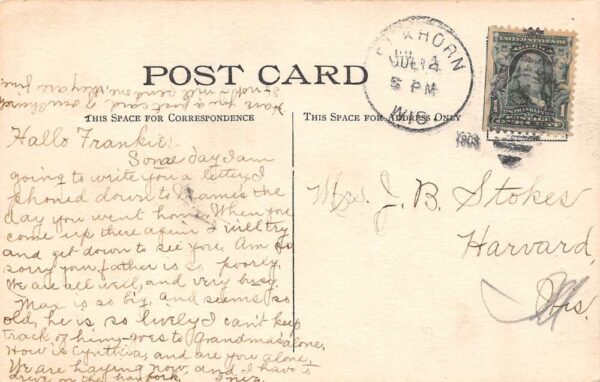 Have you a postal card of our church
if not I will send one, they are fine
POST CARD
THIS SPACE FOR CORRESPONDENCE
THIS SPACE FOR ADDRESS ONLY
ELKHORN
JUL 14
5 PM
WIS
1908
UNITED STATES OF AMERICA
1
1
Hallo Frankie:-
Some day I am
going to write you a letter, I
phoned down to Mamie's the
day you went home. When you
come up there again I will try
and get down to see you. Am so
sorry your father is so poorly.
We are all well, and very busy.
Max is so big, and seems so
old, he is so lively I can't keep
track of him, goes to Grandmas alone.
How is Cynthia, and are you alone.
We are haying now, and I have to
drive on the hayfork. Inez.
Mrs. J. B. Stokes
Harvard,
Ills.